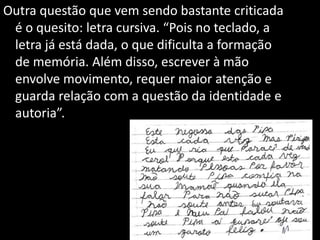 Outra questão que vem sendo bastante criticada
é o quesito: letra cursiva. “Pois no teclado, a
letra já está dada, o que dificulta a formação
de memória. Além disso, escrever à mão
envolve movimento, requer maior atenção e
guarda relação com a questão da identidade e
autoria”.
Este negosso das Pipa
Esta cada vez mas
Eu qui ria que Parace de
cerol Porque esta cada vez
matando Pessoas Por favor
não soute Pipa confia na
sua mamãe quando ela
falar Para não sutar Pipa
não soute antes eu soutava
Pipa e meu Pai falou não
soute Pipa a
um garoto feliz.